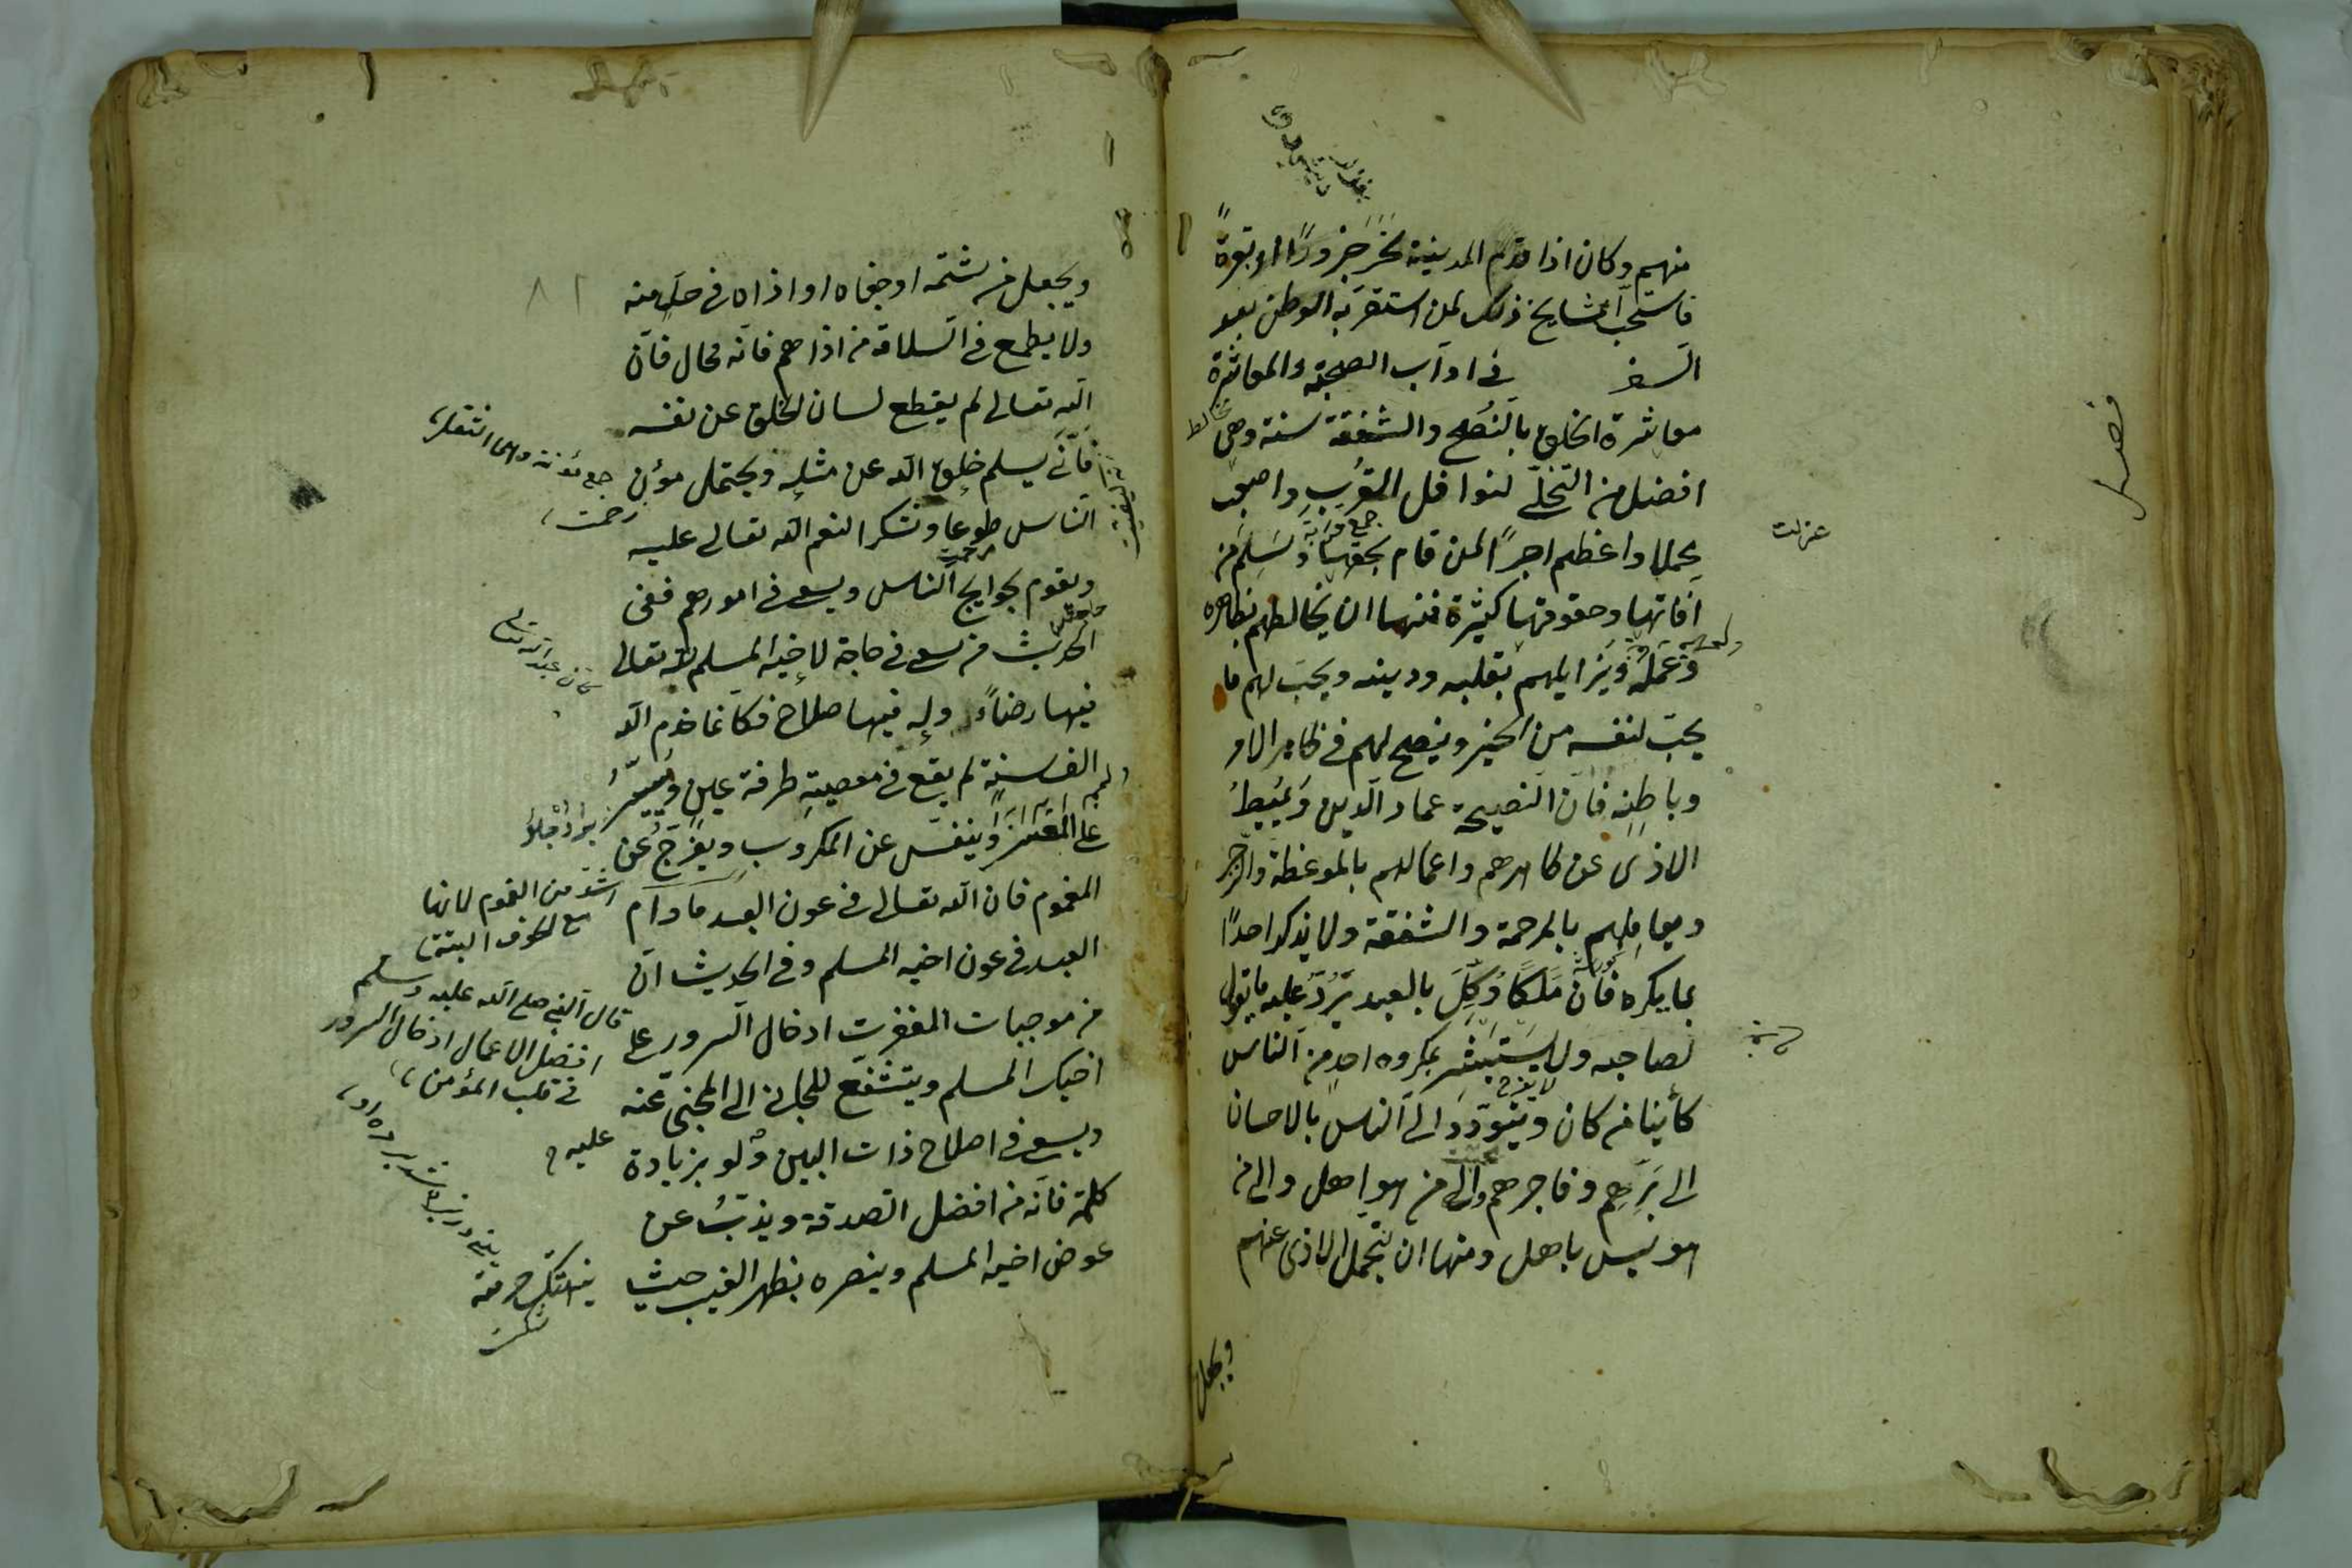 منهم وكان اذا قدم المدينة نحر جزورًا او بقرةً
فاستحب المشايخ ذلك لمن استقر به الوطن بعد
السفر فى اداب الصحبة والمعاشرة
فصل
معاشرة الخلق بالنُصح والشفقة سنة وهى
افضل من التخلّى لنوافل القُرَبِ واصعب
عزلت
جمع قرابة
محملا واعظم اجرًا لمن قام بحقها وسَلِمَ من
افاتها وحقوقها كثيرة فمنها ان يخالطهم بظاهره
وعمله ويزايلهم بقلبه ودينه ويحبّ لهم ما
يحبّ لنفسه من الخير وينصح لهم فى ظاهر الامر
وباطنِه فان النصيحة عماد الدين ويُميطُ
الاذى عن ظاهرهم واعمالهم بالموعظة والزجر
ويعاملهم بالمرحمة والشفقة ولا يذكر احدًا
بما يكره فان مَلَكًا وُكِّلَ بالعبد يَرُدُّ عليه ما يقول
لصاحبه ولا يستبشر بمكروه احدٍ من الناس
لا يفرح
كأينا من كان ويتودّد الى الناس بالاحسان
الى بَرّهم وفاجرهم والى من هو اهل والى من
هو ليس باهل ومنها ان يتحمل الاذى عنهم
ويجعل
٨٢
ويجعل من شتمه او جفاه او اذاه فى حلٍ منه
ولا يطمع فى السلامة من اذاهم فانه محال فان
الله تعالى لم يقطع لسان الخلق عن نفسه
فانّى يسلم خلق الله عن مثله ويحتمل مؤن
جمع مؤنة وهى الثقل
زحمت
الناس طوعا وشكرا لنعم الله تعالى عليه
ويقوم بحوايج الناس ويسعى فى امورهم ففى
الحديث من سعى فى حاجة لاخيه المسلم لله تعالى
فيها رضاءً وله فيها صلاح فكانما خدم الله
الف سنة لم يقع فى معصيةِ طرفة عين ويُيسّرُ
على المعسر وينفّس عن المكروب ويفرّج عن
المغموم فان الله تعالى فى عون العبد ما دام
اشدّ من الغموم لانها
مع الخوف
العبد فى عون اخيه المسلم وفى الحديث انّ
من موجبات المغفرت ادخال السرور على
قال النبى صلى الله عليه وسلم
افضل الاعمال ادخال السرور
فى قلب المؤمن
اخيك المسلم ويتشفّع للجانى الى المجنى عنه
عليه
ويسعى فى اصلاح ذات البين ولو بزيادة
كلمة فانه من افضل الصدقة ويذبّ عن
عوض اخيه المسلم وينصره بظهر الغيب حيث
ينهتك حرمته